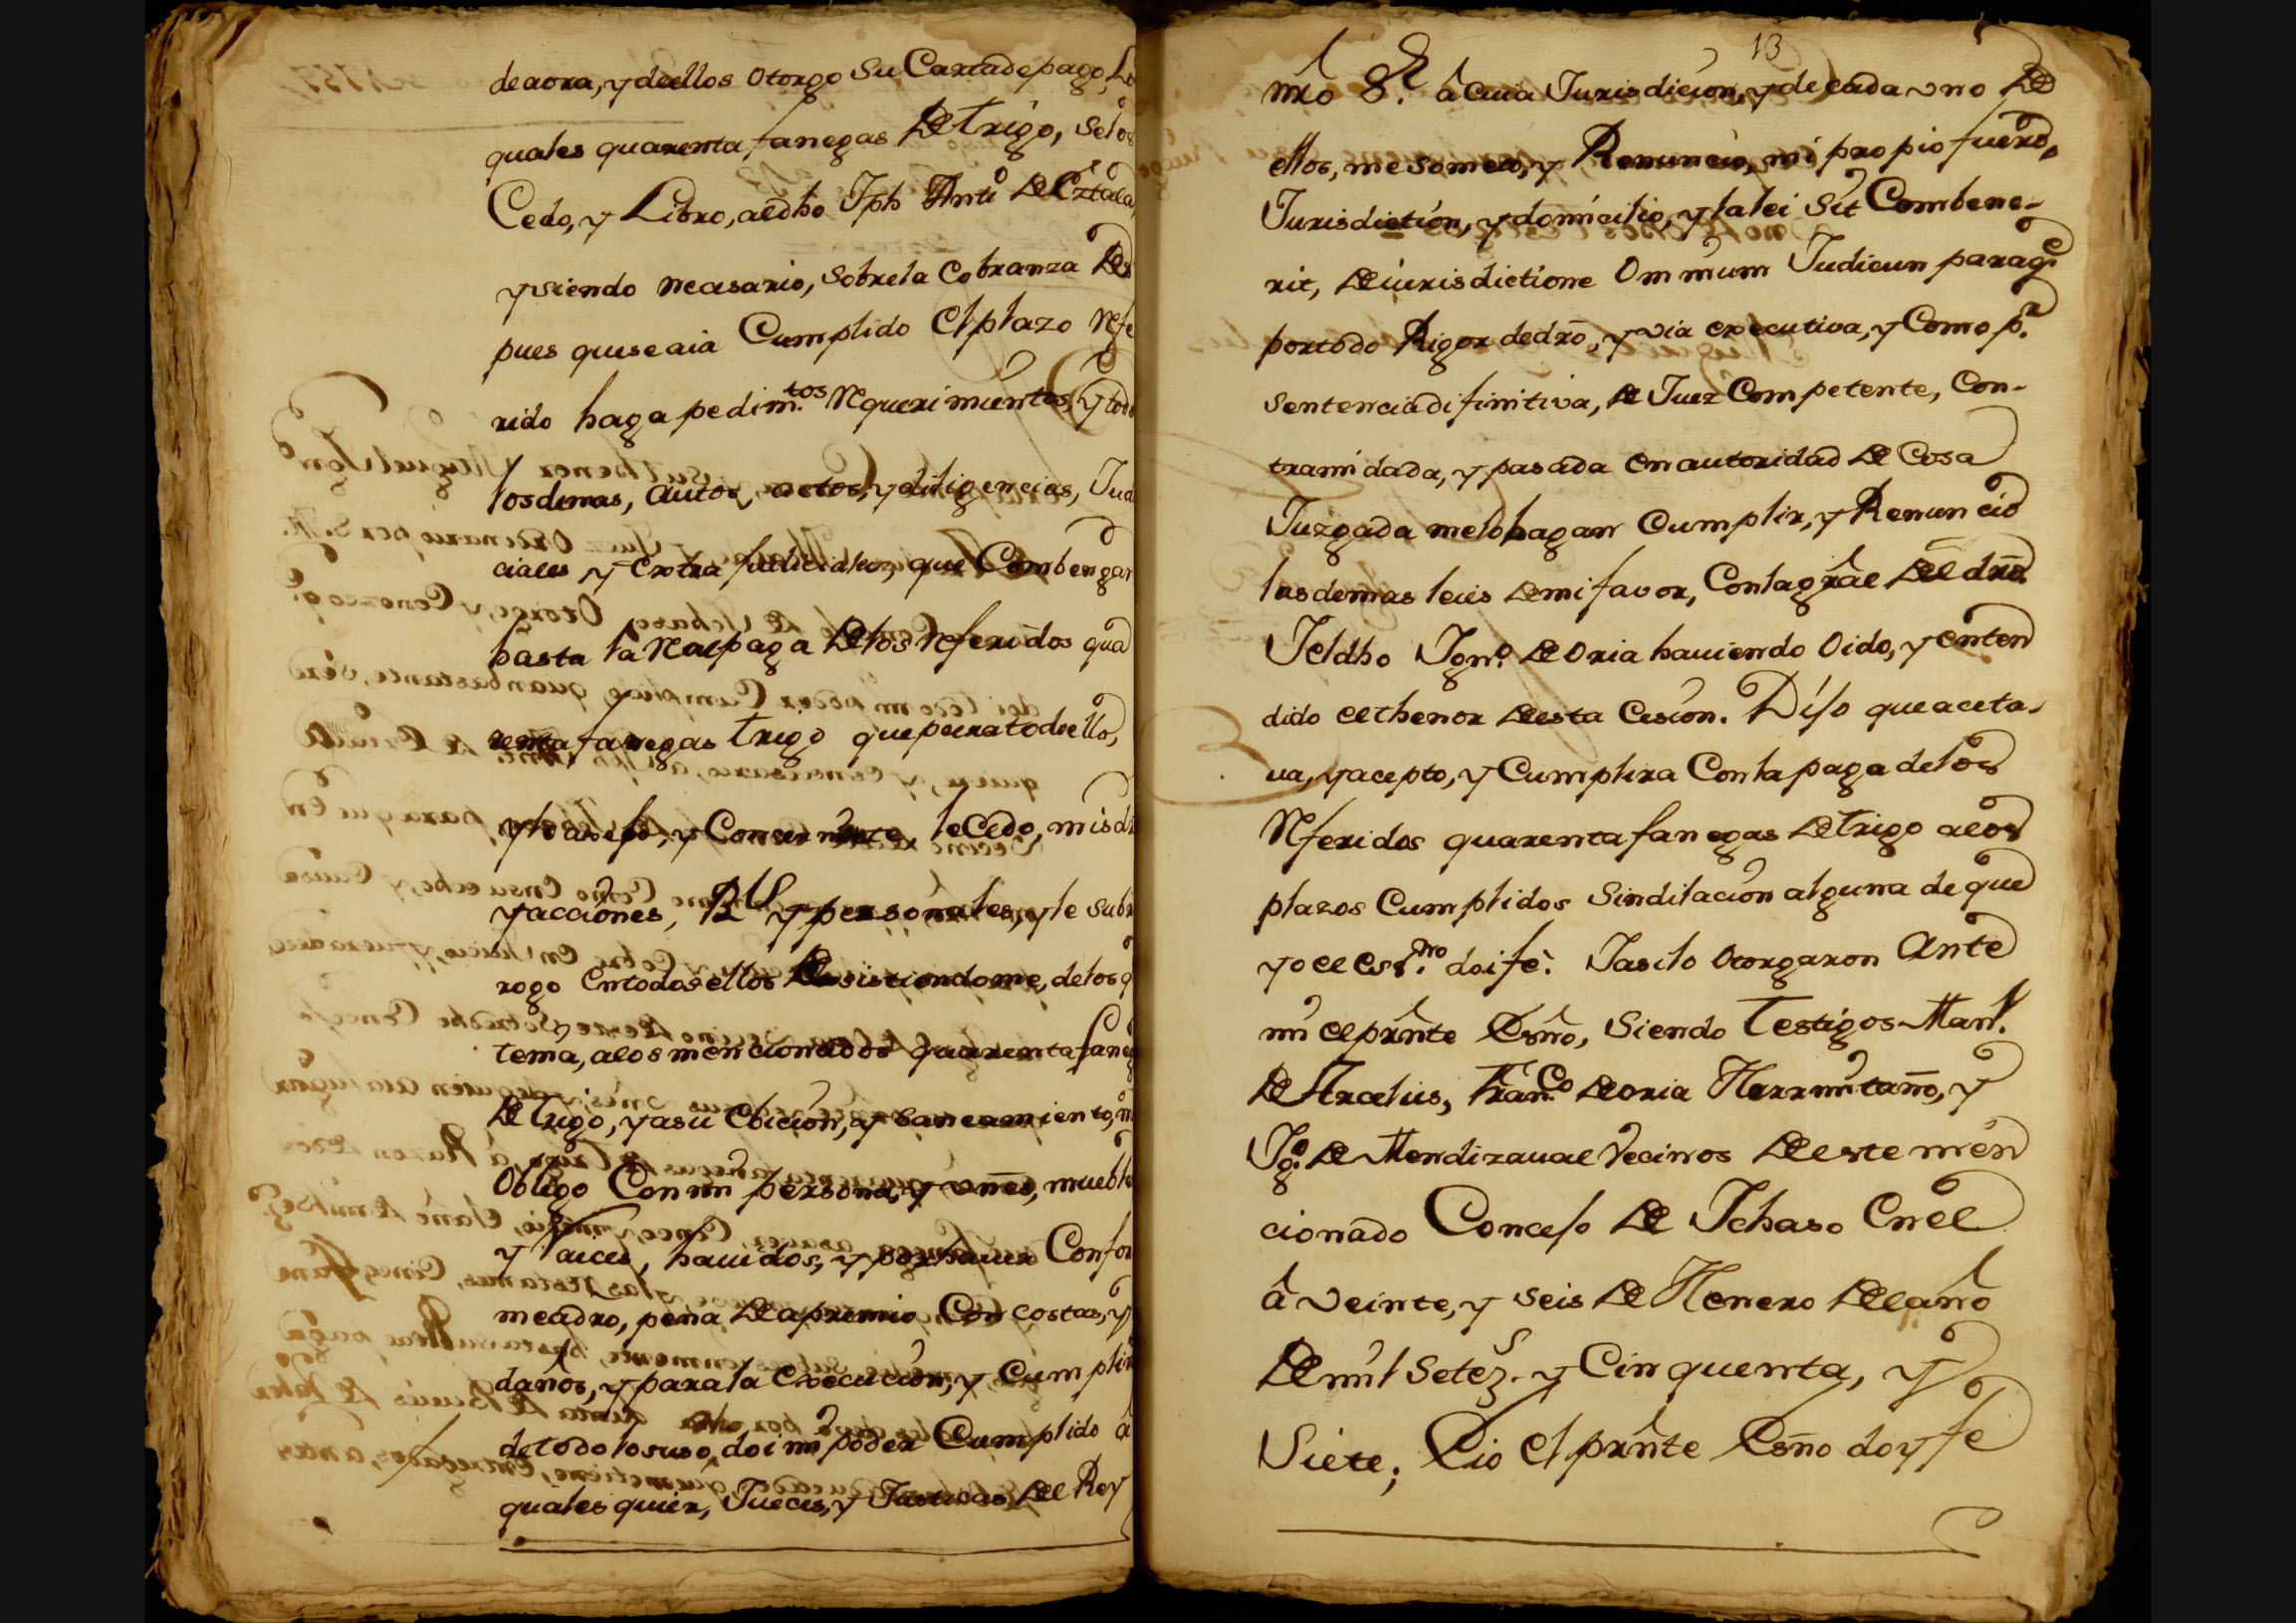 de aora, y de ellos otorgo su Carta de pago, Lo
quales quarenta fanegas de trigo, se los
Cedo, y Libro, al dho Jph Anto de Eztala,
y siendo necesario, sobre la Cobranza des
pues que se aia Cumplido el plazo Refe
rido haga pedim.tos Requerimientos, y todo
los demas, autos, actos, y diligencias, Jud
ciales y extra judiciales, que Combengan
hasta la Real paga de los Referidos qua
renta fanegas trigo que para todo ello,
y lo anejo, y Concerniente, le Cedo, mis dr
y acciones, Rls y personales, y le subr
rogo en todos ellos desistiendome, de los q
tema, a los mencionados quarenta faneg
de trigo, y a su evicion, y saneamiento, m
obligo Con mi persona, y vnes, mueble
y raices, havidos, y por haver Confor
me a dro, pena de apremio Con costas, y
daños, y para la execucion, y Cumplim
de todo lo suso, doi mi poder Cumplido a
quales quier, Jueces, y Justicias del Rey
13
nro Sr. â cuia Jurisdicion, y de cada vno de
ellos, me someto, y Renuncio, mi propio fuero,
Jurisdiction, y domicilio, y la lei Sit Combene-
rit, de iurisdictione Omnium Judicun para q.e
por todo Rigor de dro, y via executiva, y Como p.r
sentencia difinitiva, de Juez Competente, Con-
tra mi dada, y pasada en autoridad de Cosa
Juzgada me lo hagan Cumplir, y Renuncio
las demas leies de mi favor, Con la gral del dro.
I el dho Ign.o de Oria haviendo oido, y enten
dido el thenor de esta Cesion. Dijo que aceta-
va, y acepto, y Cumplira Con la paga de los
Referidos quarenta fanegas de trigo a los
plazos Cumplidos sin dilacion alguna de que
yo el es.no doi fe. I asi lo otorgaron ante
mi el prnte Esno, siendo testigos Man.l
de Arcelus, Fran.co de Oria Herrmitaño, y
Ig.o de Mendizaval Vecinos de este men
cionado Concejo de Ichaso en el
â veinte, y seis de Henero del año
de mil setez.s y Cinquenta, y
Siete; E io el prnte Esno doy fe